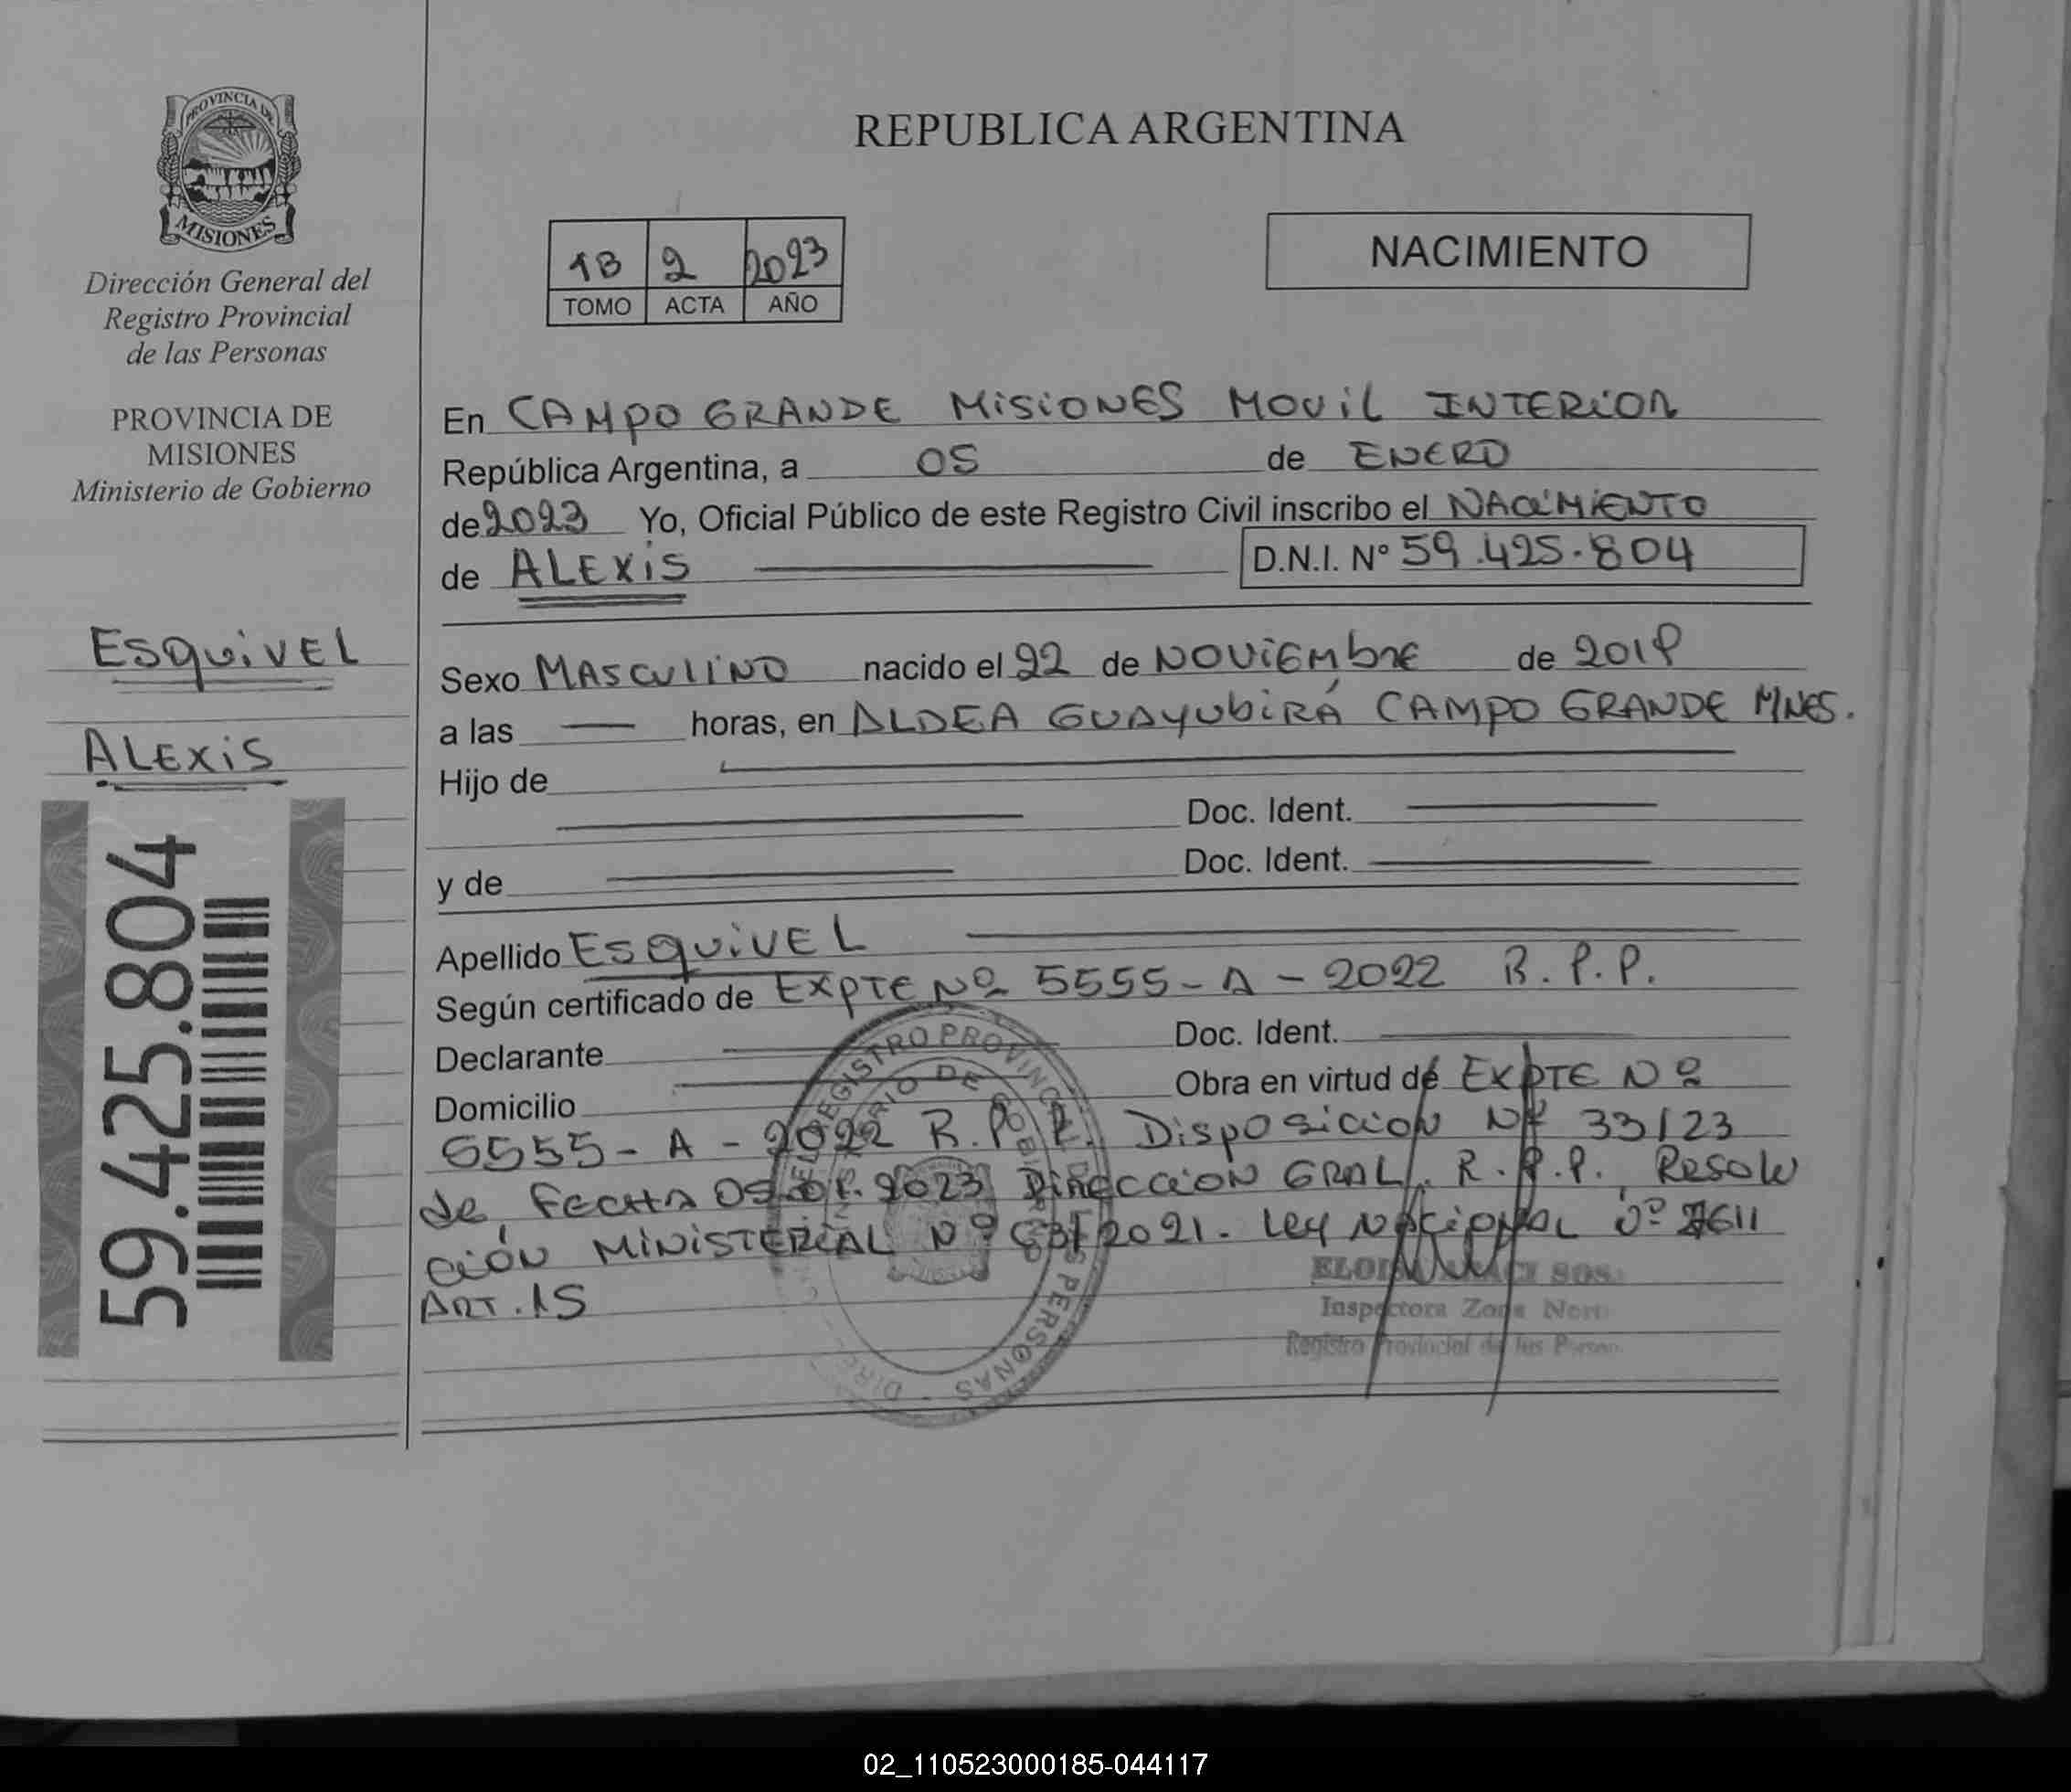 PROVINCIA DE
MISIONES
Dirección General del
Registro Provincial
de las Personas
PROVINCIA DE
MISIONES
Ministerio de Gobierno
ESQUIVEL
ALEXIS
59.425.804
REPUBLICA ARGENTINA
1B 2 2023
TOMO ACTA AÑO
NACIMIENTO
En CAMPO GRANDE MISIONES MOVIL INTERIOR
República Argentina, a 05 de ENERO
de 2023 Yo, Oficial Público de este Registro Civil inscribo el NACIMIENTO
de ALEXIS D.N.I. Nº 59.425.804
Sexo MASCULINO nacido el 22 de NOVIEMBRE de
a las — horas, en ALDEA GUAYUBIRÁ CAMPO GRANDE MNES.
Hijo de
Doc. Ident.
y de Doc. Ident.
Apellido ESQUIVEL
Según certificado de EXPTE Nº 5555-A-2022 R.P.P.
Declarante Doc. Ident.
Domicilio Obra en virtud de EXPTE Nº
5555-A-2022 R.P.P. DISPOSICION Nº 33/23
de FECHA 05.01.2023 DIRECCION GRAL. R.P.P. RESOLU
CIÓN MINISTERIAL Nº /2021. LEY NACIONAL
ART. 15
REGISTRO PROVINCIAL PERSONAS
Inspectora Zona Nort
Registro Provincial de las Person
02_110523000185-044117